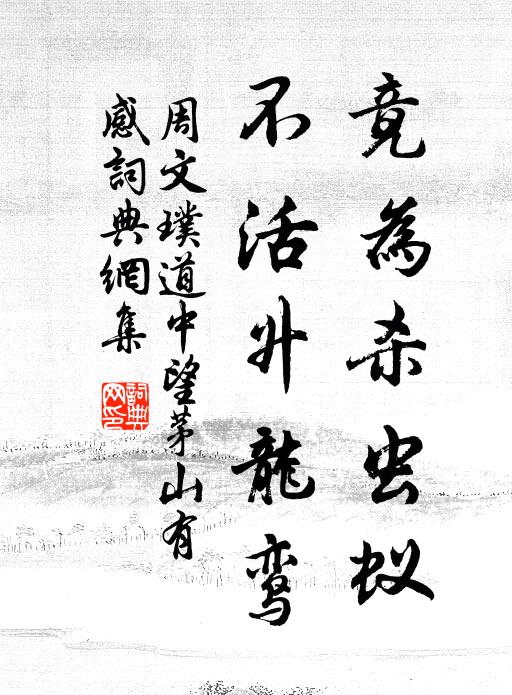 竟為杀虫蚁
不活升龍鸾
周文璞道中望茅山有
感詞典網集
詞典
网印